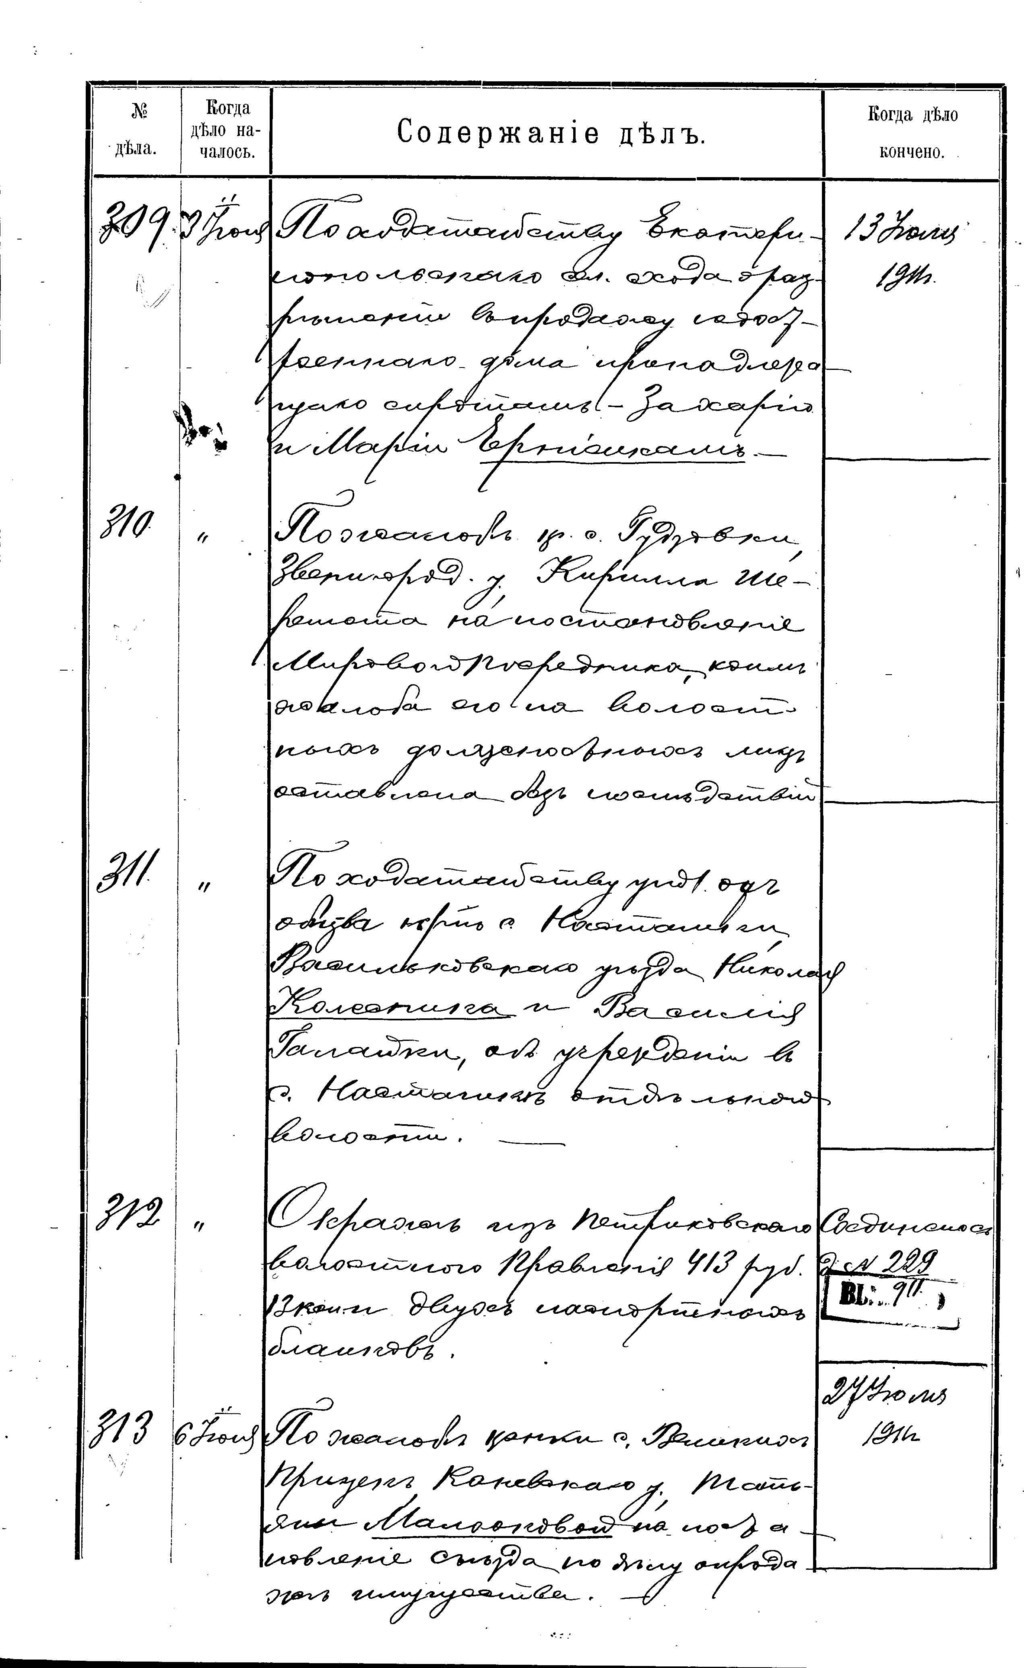 № дѣла.
Когда дѣло началось.
Содержаніе дѣлъ.
Когда дѣло кончено.
309. 3 Іюня По ходатайству Екатери- 13 Іюля
нопольскаго сл. схода о раз- 1911г.
рѣшеніи въ продажу
дома принадлежа
щаго сиротамъ – Захарію
и Маріи Ерніенкамъ. —
310 „ По жалобѣ кр. с. Гудзовки,
Звенигород. у. Кирилла Ше-
ремета на постановленіе
Мирового Посредника, коимъ
жалоба его на волост-
ныхъ должностныхъ лицъ
оставлена безъ послѣдствій
311. „ По ходатайству упол. отъ
общва крнъ с. Насташки,
Васильковскаго уѣзда Николая
Колесника и Василія
Галайки, объ учрежденіи въ
с. Насташкѣ отдѣльной
волости. —
312 „ О кражѣ изъ Петриковскаго Соединено съ
волостного Правленія 413 руб. д. № 229
13 коп и двухъ паспортныхъ 911
бланковъ.
27 Іюля
313 6 Іюня По жалобѣ крнки с. Великихъ 1911г.
Прицекъ, Каневскаго у., Тать-
яны на поста-
новленіе съѣзда по дѣлу о прода
жѣ имущества. —